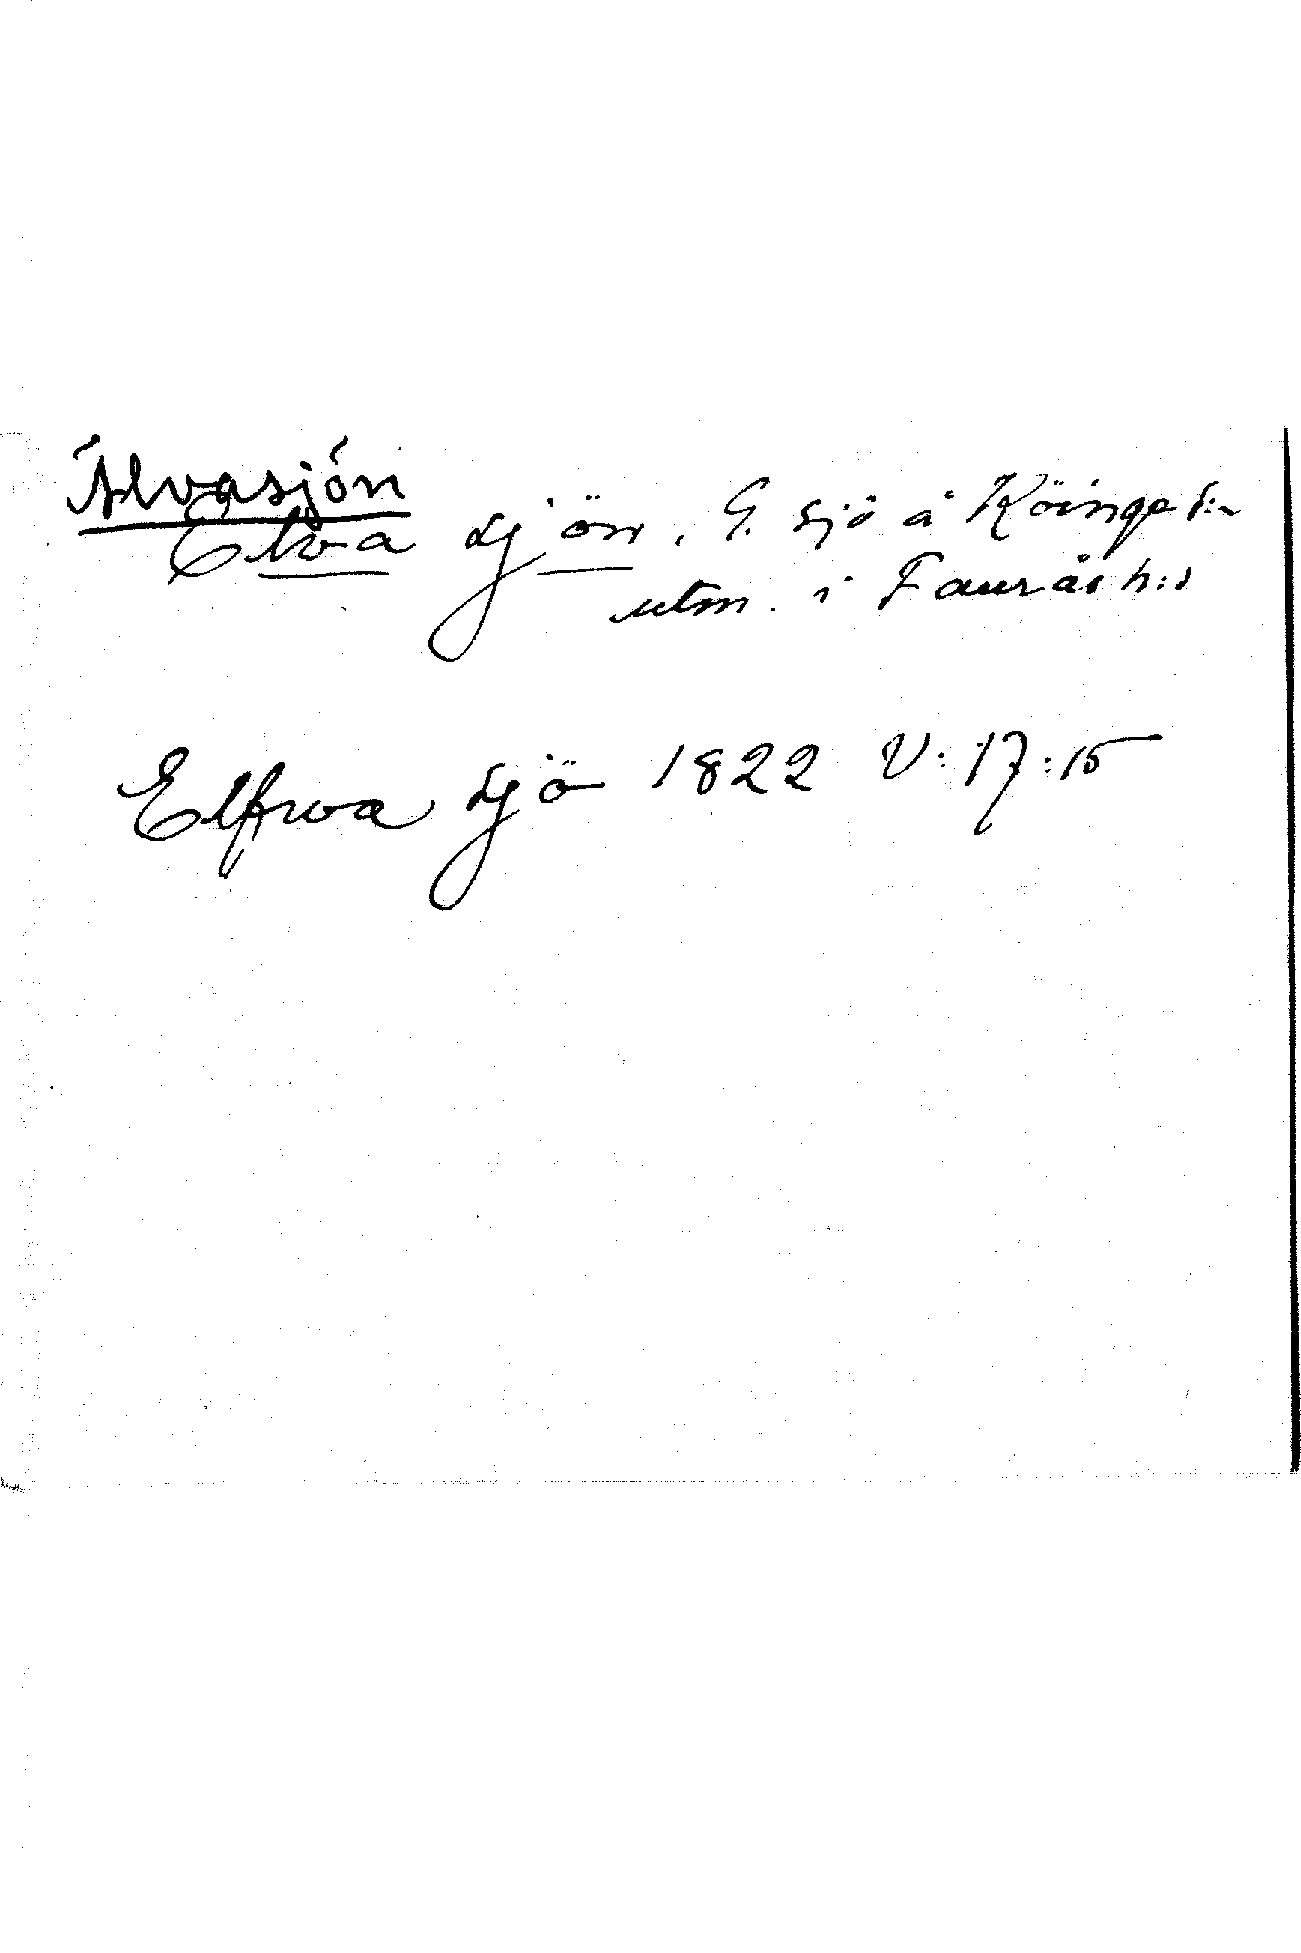 Älvasjön
Elva sjön, G. sjö å Köinge s:n
utm. i Faurås h:d
Elfwa sjö 1822 V:17:15